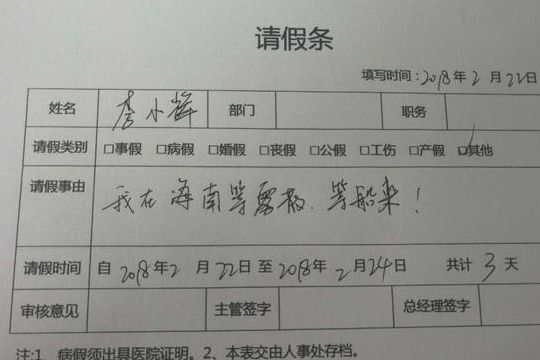 请假条
填写时间:2018年2月22日
姓名 李小辉 部门 职务
请假类别 □事假 □病假 □婚假 □丧假 □公假 □工伤 □产假 ☑其他
请假事由 我在海南等雾散、等船来!
请假时间 自2018年2月22日至2018年2月24日 共计3天
审核意见 主管签字 总经理签字
注:1、病假须出具医院证明。2、本表交由人事处存档。